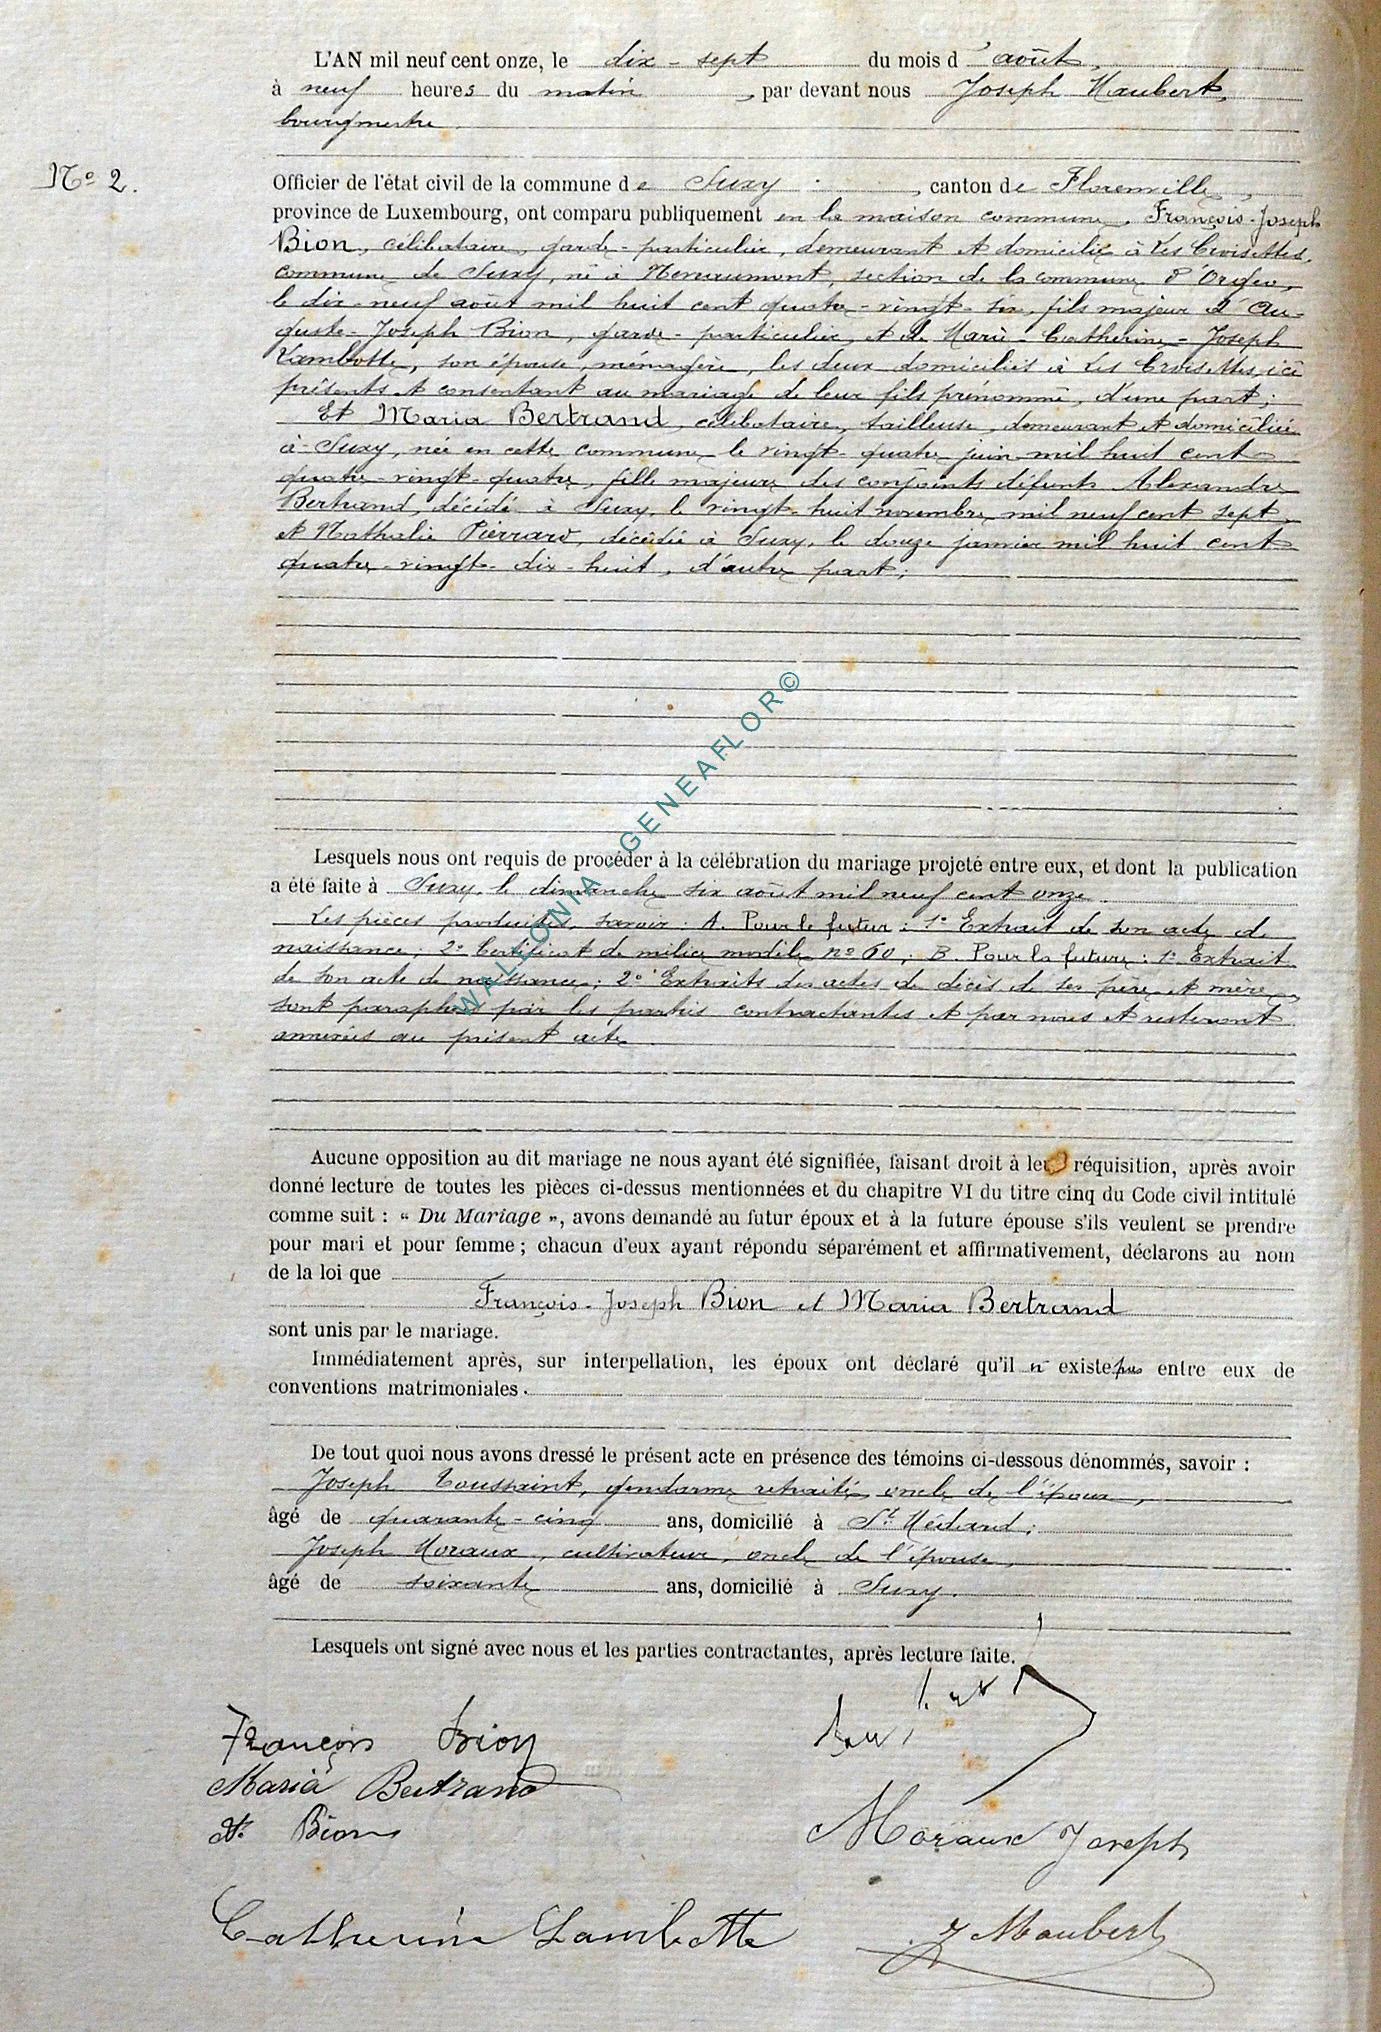 L'AN mil neuf cent onze, le dix-sept du mois d'août,
à neuf heures du matin, par devant nous Joseph Maubert,
bourgmestre
N° 2.
Officier de l'état civil de la commune de Suxy, canton de Florenville,
province de Luxembourg, ont comparu publiquement en la maison commune, François-Joseph
Bion, célibataire, garde-particulier, demeurant et domicilié à Les Croisettes,
commune de Suxy, né à Nevraumont, section de la commune d'Orgeo,
le dix-neuf août mil huit cent quatre-vingt-six, fils majeur d'Au-
guste-Joseph Bion, garde-particulier, et de Marie-Catherine-Joseph
Lambotte, son épouse, ménagère, les deux domiciliés à Les Croisettes, ici
présents et consentant au mariage de leur fils prénommé, d'une part;
Et Maria Bertrand, célibataire, tailleuse, demeurant et domiciliée
à Suxy, née en cette commune le vingt-quatre juin mil huit cent
quatre-vingt-quatre, fille majeure des conjoints défunts Alexandre
Bertrand, décédé à Suxy, le vingt-huit novembre mil neuf cent sept,
et Nathalie Pierrard, décédée à Suxy, le douze janvier mil huit cent
quatre-vingt-dix-huit, d'autre part;
WALLONIA GENEAFLOR©
Lesquels nous ont requis de procéder à la célébration du mariage projeté entre eux, et dont la publication
a été faite à Suxy, le dimanche six août mil neuf cent onze.
Les pièces produites, savoir: A. Pour le futur: 1° Extrait de son acte de
naissance; 2° Certificat de milice modèle n° 60; B. Pour la future: 1° Extrait
de son acte de naissance; 2° Extraits des actes de décès de ses père et mère
sont paraphées par les parties contractantes et par nous et resteront
annexées au présent acte
Aucune opposition au dit mariage ne nous ayant été signifiée, faisant droit à leur réquisition, après avoir
donné lecture de toutes les pièces ci-dessus mentionnées et du chapitre VI du titre cinq du Code civil intitulé
comme suit : « Du Mariage », avons demandé au futur époux et à la future épouse s'ils veulent se prendre
pour mari et pour femme ; chacun d'eux ayant répondu séparément et affirmativement, déclarons au nom
de la loi que
François-Joseph Bion et Maria Bertrand
sont unis par le mariage.
Immédiatement après, sur interpellation, les époux ont déclaré qu'il n'existe pas entre eux de
conventions matrimoniales.
De tout quoi nous avons dressé le présent acte en présence des témoins ci-dessous dénommés, savoir :
Joseph Toussaint, gendarme retraité, oncle de l'époux,
âgé de quarante-cinq ans, domicilié à St Médard;
Joseph Moraux, cultivateur, oncle de l'épouse,
âgé de soixante ans, domicilié à Suxy.
Lesquels ont signé avec nous et les parties contractantes, après lecture faite.
François Bion
Maria Bertrand
At. Bion
Moraux Joseph
Catherine Lambotte
J Maubert